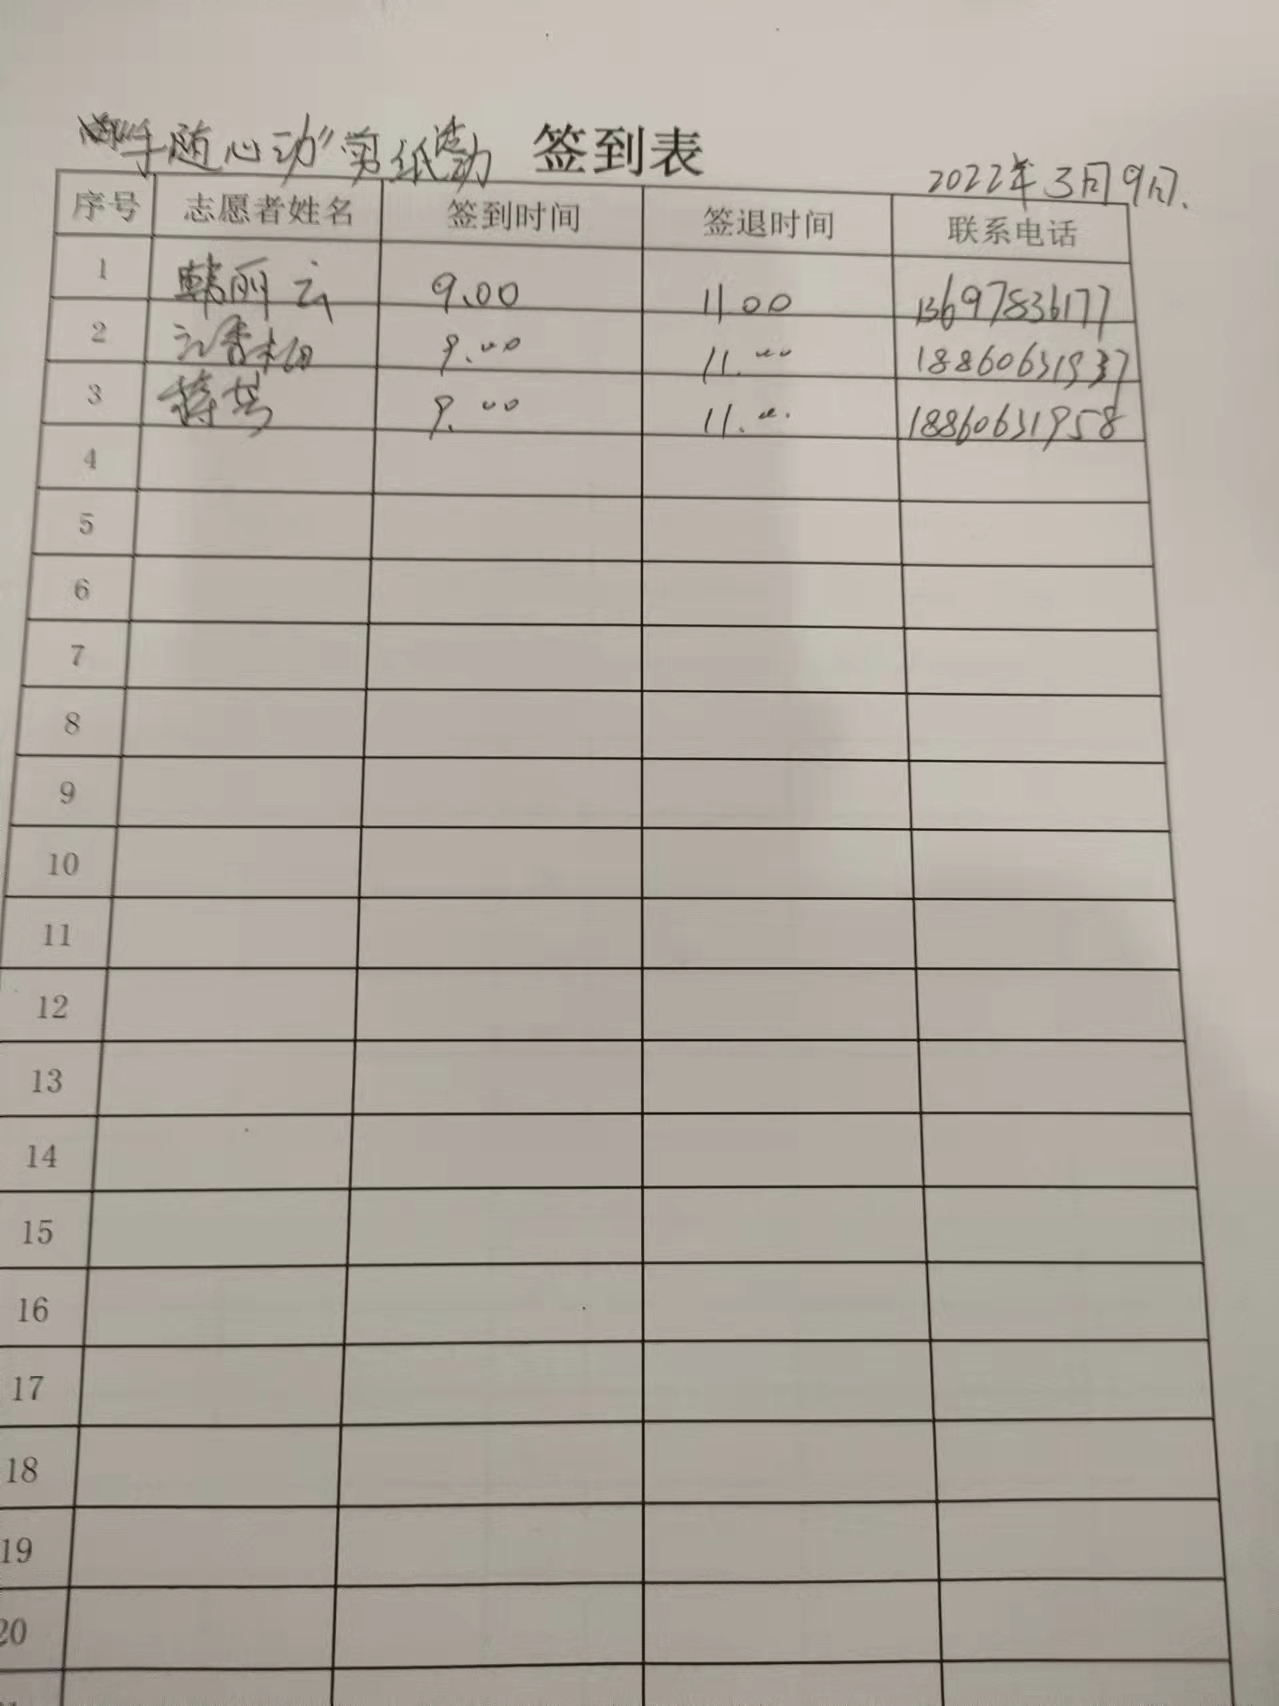 "手随心动"剪纸活动 签到表
2022年3月9日.
序号 志愿者姓名 签到时间 签退时间 联系电话
1 韩丽云 9.00 11 00 13697836177
2 9.00 11.00 18860631937
3 9.00 11.00 18860631958
4
5
6
7
8
9
10
11
12
13
14
15
16
17
18
19
20